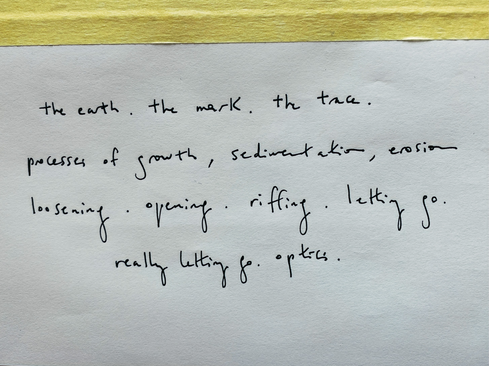 the earth. the mark. the trace.
processes of growth, sedimentation, erosion
loosening. opening. riffing. letting go.
really letting go. optics.